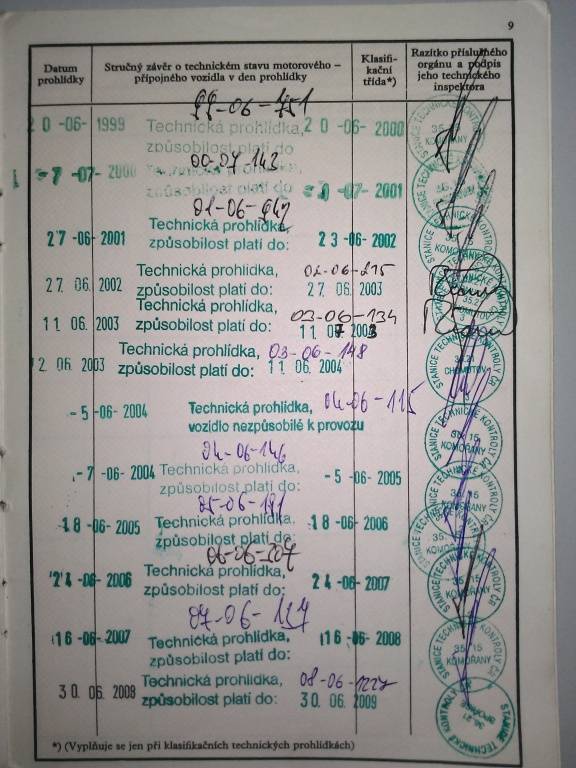 9
Datum prohlídky
Stručný závěr o technickém stavu motorového – přípojného vozidla v den prohlídky
Klasifikační třída*)
Razítko příslušného orgánu a podpis jeho technického inspektora
99-06-751
20 -06- 1999 Technická prohlídka, 20 -06- 2000
způsobilost platí do
00-07-143
-7 -07- 2000 Technická prohlídka
způsobilost platí do -07- 2001
01-06-947
27 -06- 2001 Technická prohlídka,
způsobilost platí do: 23 -06- 2002
27. 06. 2002 Technická prohlídka, 02-06-215
způsobilost platí do: 27. 06. 2003
11. 06. 2003 Technická prohlídka, 03-06-134
způsobilost platí do: 11 2003
2. 06. 2003 Technická prohlídka, 03-06-148
způsobilost platí do: 11 06. 2004
- 5 -06- 2004 Technická prohlídka, 04-06-115
vozidlo nezpůsobilé k provozu
04-06-146
- 7 -06- 2004 Technická prohlídka,
způsobilost platí do: - 5 -06- 2005
05-06-191
18 -06- 2005 Technická prohlídka, 18 -06- 2006
způsobilost platí do:
24 -06- 2006 Technická prohlídka,
způsobilost platí do: 24 -06- 2007
07-06-137
16 -06- 2007 Technická prohlídka, 16 -06- 2008
způsobilost platí do:
30. 06. 2008 Technická prohlídka, 08-06-1227
způsobilost platí do: 30. 06. 2009
STANICE TECHNICKÉ KONTROLY ČR
35. 15
KOMOŘANY
CHOMUTOV
*) (Vyplňuje se jen při klasifikačních technických prohlídkách)